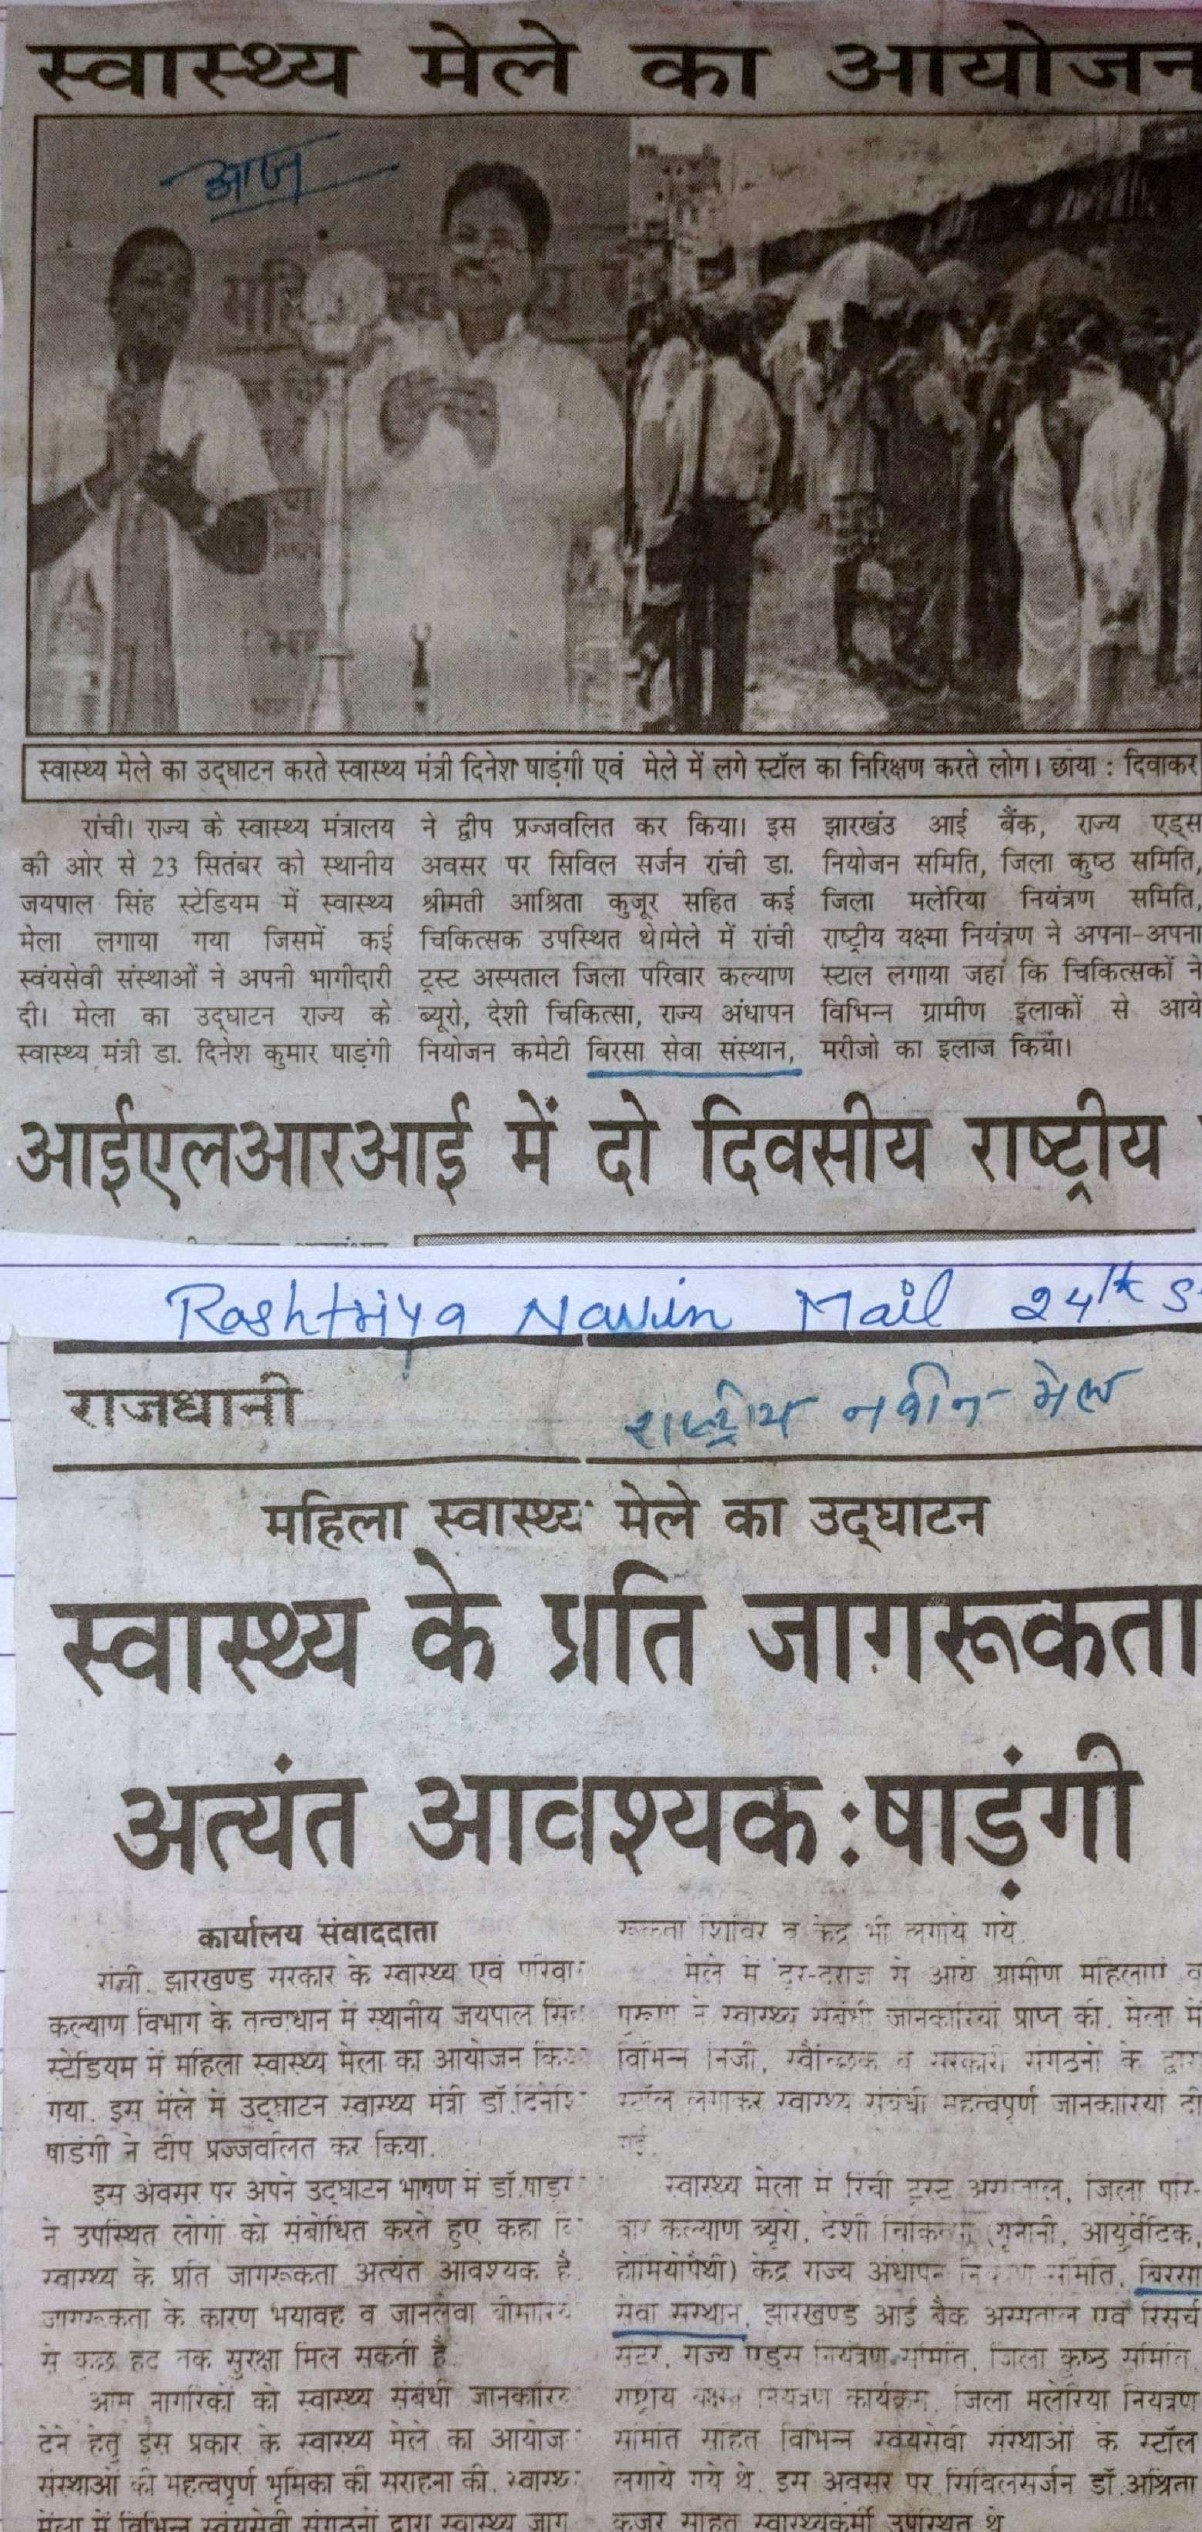 स्वास्थ्य मेले का आयोजन
आज
स्वास्थ्य मेले का उद्घाटन करते स्वास्थ्य मंत्री दिनेश षाड़ंगी एवं मेले में लगे स्टॉल का निरिक्षण करते लोग। छाया : दिवाकर
रांची। राज्य के स्वास्थ्य मंत्रालय
की ओर से 23 सितंबर को स्थानीय
जयपाल सिंह स्टेडियम में स्वास्थ्य
मेला लगाया गया जिसमें कई
स्वंयसेवी संस्थाओं ने अपनी भागीदारी
दी। मेला का उद्घाटन राज्य के
स्वास्थ्य मंत्री डा. दिनेश कुमार षाड़ंगी
ने द्वीप प्रज्जवलित कर किया। इस
अवसर पर सिविल सर्जन रांची डा.
श्रीमती आश्रिता कुजूर सहित कई
चिकित्सक उपस्थित थे।मेले में रांची
ट्रस्ट अस्पताल जिला परिवार कल्याण
ब्यूरो, देशी चिकित्सा, राज्य अंधापन
नियोजन कमेटी बिरसा सेवा संस्थान,
झारखंउ आई बैंक, राज्य एड्स
नियोजन समिति, जिला कुष्ठ समिति,
जिला मलेरिया नियंत्रण समिति,
राष्ट्रीय यक्ष्मा नियंत्रण ने अपना-अपना
स्टाल लगाया जहां कि चिकित्सकों ने
विभिन्न ग्रामीण इलाकों से आये
मरीजो का इलाज किया।
आईएलआरआई में दो दिवसीय राष्ट्रीय
Rashtriya Navin Mail 24th S
राजधानी
राष्ट्रीय नवीन मेल
महिला स्वास्थ्य मेले का उद्घाटन
स्वास्थ्य के प्रति जागरूकता
अत्यंत आवश्यक : षाड़ंगी
कार्यालय संवाददाता
रांची. झारखण्ड सरकार के स्वास्थ्य एवं
कल्याण विभाग के तत्वाधान में स्थानीय जयपाल
स्टेडियम में महिला स्वास्थ्य मेला का आयोजन
गया. इस मेले में उद्घाटन स्वास्थ्य मंत्री डॉ.
षाडंगी ने दीप प्रज्जवलित कर किया.
इस अवसर पर अपने उद्घाटन भाषण में डॉ.
ने उपस्थित लोगों को संबोधित करते हुए कहा
स्वास्थ्य के प्रति जागरूकता अत्यंत आवश्यक है.
जागरूकता के कारण भयावह व जानलेवा
से कुछ हद तक सुरक्षा मिल सकती है.
आम नागरिकों को स्वास्थ्य संबंधी
देने हेतु इस प्रकार के स्वास्थ्य मेले का
संस्थाओं की महत्वपूर्ण भूमिका की सराहना की.
मेला में विभिन्न स्वंयसेवी संगठनों द्वारा स्वास्थ्य जाग
रूकता शिविर व केंद्र भी लगाये गये.
मेले में दूर-दराज से आये ग्रामीण महिलाएं व
ने स्वास्थ्य संबंधी जानकारियां प्राप्त की. मेला में
विभिन्न निजी, स्वैच्छिक व सरकारी संगठनों के द्वारा
स्टॉल लगाकर स्वास्थ्य संबंधी महत्वपूर्ण जानकारियां दी
गई.
स्वास्थ्य मेला में रिंची ट्रस्ट अस्पताल, जिला परि-
वार कल्याण ब्यूरो, देशी चिकित्सा (यूनानी, आयुर्वेदिक,
होमियोपैथी) केंद्र राज्य अंधापन समिति, बिरसा
सेवा संस्थान, झारखण्ड आई बैंक अस्पताल एवं रिसर्च
सेंटर, राज्य एड्स नियंत्रण समिति, जिला कुष्ठ समिति,
नियंत्रण कार्यक्रम, जिला मलेरिया नियंत्रण
समिति सहित विभिन्न स्वंयसेवी संस्थाओं के स्टॉल
लगाये गये थे. इस अवसर पर सिविलसर्जन डॉ.अश्रिता
कुजूर सहित स्वास्थ्यकर्मी उपस्थित थे